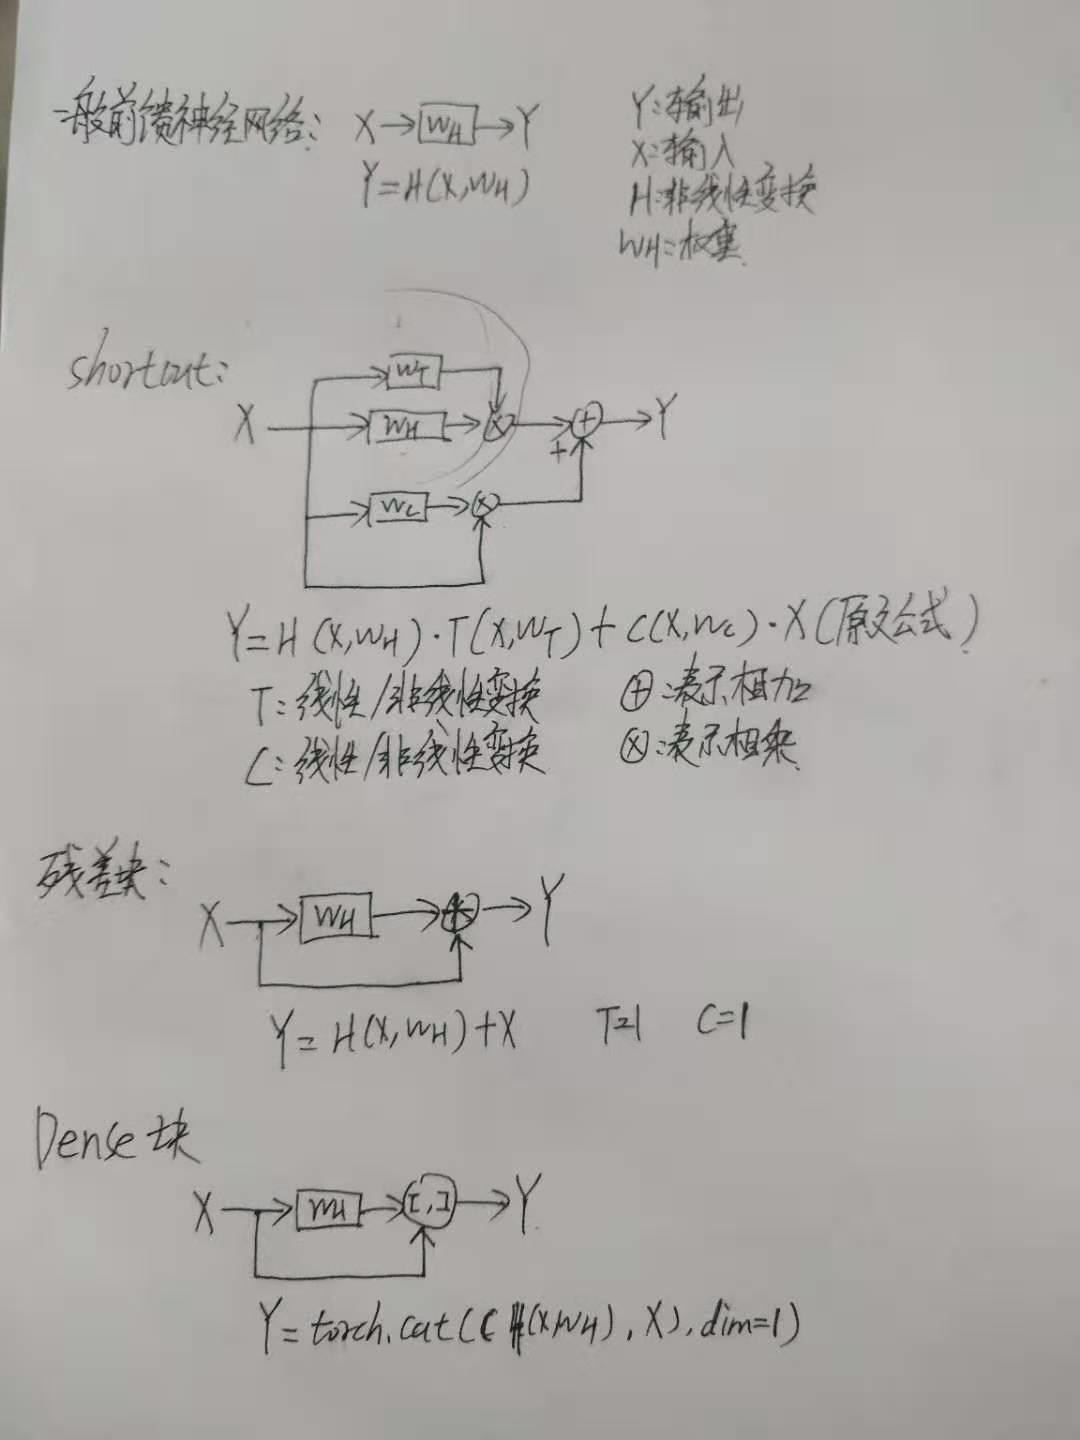 一般前馈神经网络: X → WH → Y
Y=H(X,WH)
Y:输出
X:输入
H:非线性变换
WH:权重
shortcut:
WT
X WH × + Y
+
WC ×
Y=H(X,WH)·T(X,WT)+C(X,WC)·X(原文公式)
T:线性/非线性变换 ⊕:表示相加
C:线性/非线性变换 ⊗:表示相乘
残差块:
X WH + Y
Y=H(X,WH)+X T=1 C=1
Dense块
X WH [,] Y
Y=torch.cat((H(X,WH),X),dim=1)